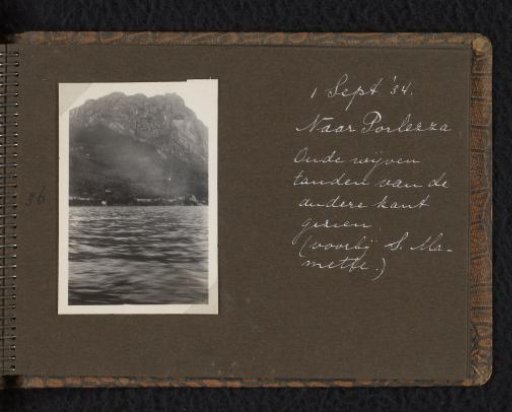 36
1 Sept '34.
Naar Porlezza.
Oude wijven
tanden van de
andere kant
gezien
(voorbij S. Ma-
mette.)